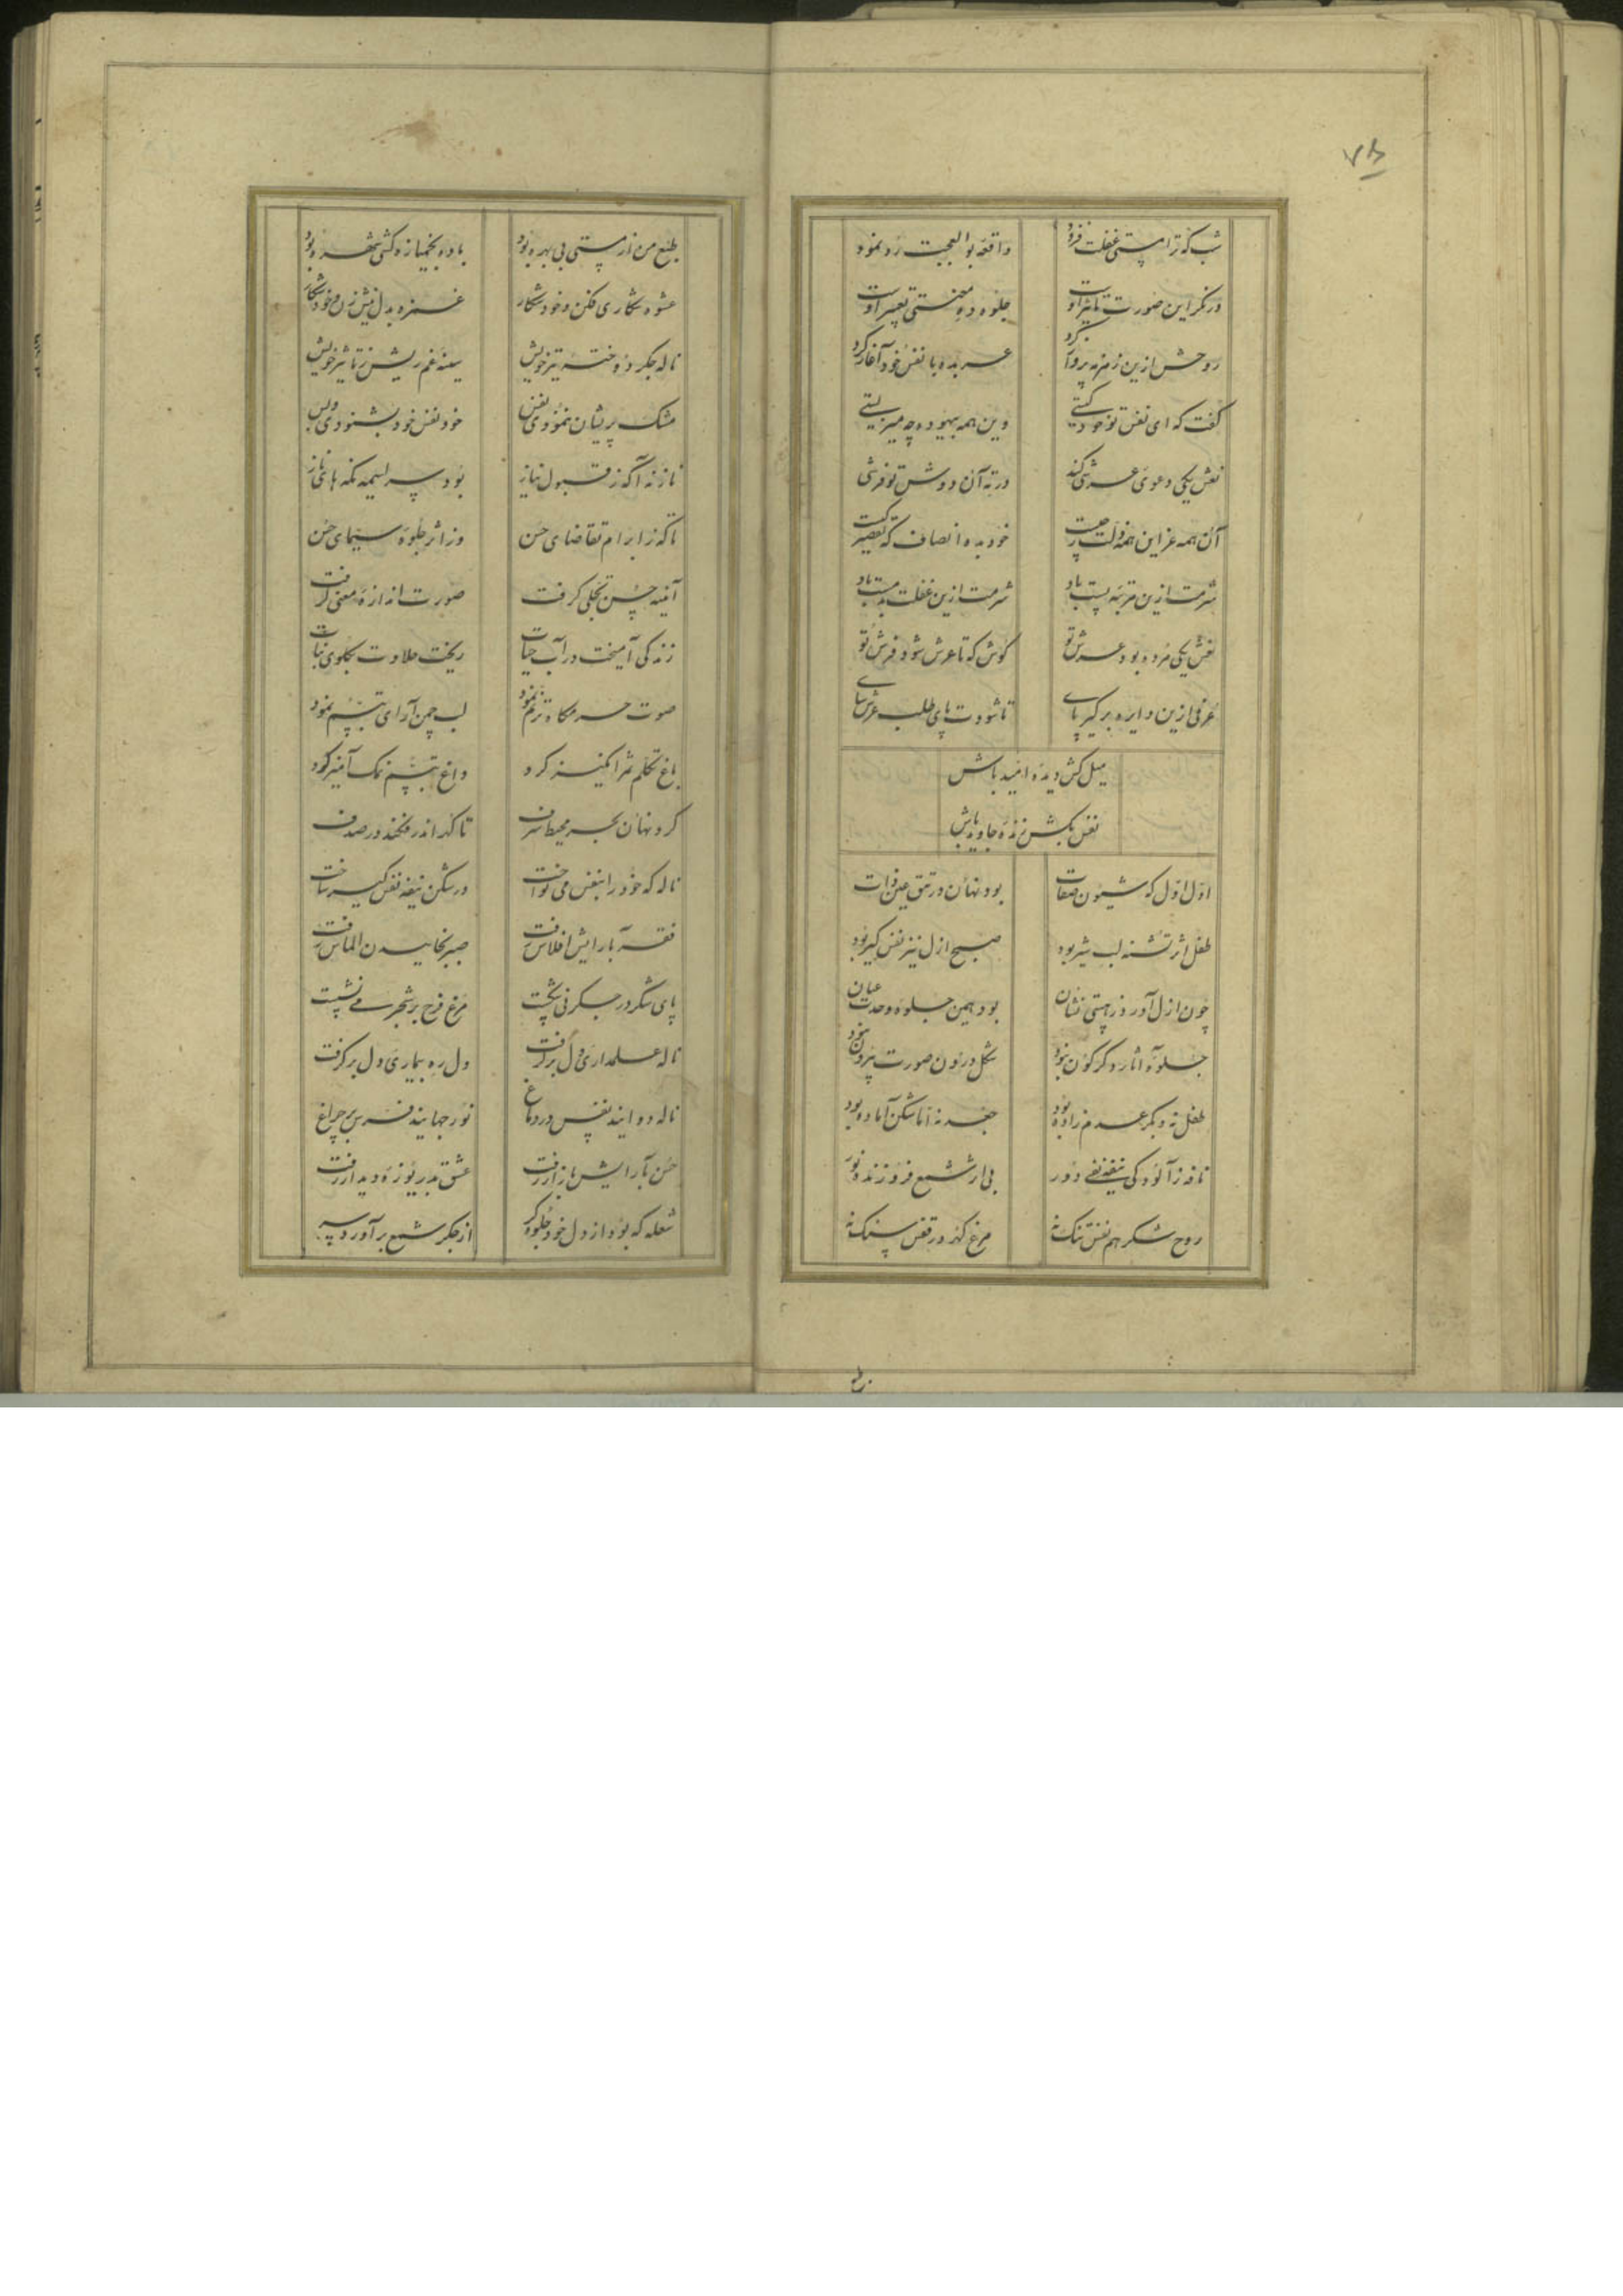 ۷۸
شب که ترا مستی غفلت فزود واقعه بوالعجبیت رو نمود
درنگر این صورت تاثیر اوست جلوه ده معنی تعبیر اوست
روحش ازین زمزمه پرواز کرد عربده با نفس خود آغاز کرد
گفت که ای نفس تو خود کیستی وین همه بیهوده چه میزیستی
نفس یکی دعوی عرشی کند درته آن دوشش تو فرشی
آن همه عز این همه ذلت ز چیست خود بده انصاف که تقصیر کیست
شرمت ازین مرتبه پست باد شرمت ازین غفلت بدمست باد
نفس یکی مرده بود عرش تو کوش که تا عرش شود فرش تو
عرفی ازین دایره برگیر پای تا شودت پای طلب عرش سای
میل کش دیده امید باش
نفس بکش زنده جاوید باش
اول اول که شیون صفات بود نهان در تتق عین ذات
طفل اثر تشنه لب شیر بود صبح ازل نیز نفس گیر بود
چون ازل آورد ز هستی نشان بود همین جلوه وحدت عیان
جلوه آثار دگرگون نبود شکل درون صورت بیرون نبود
طفل نه و بکر عدم زاده بود جعد نه اما شکن آماده بود
نافه ز آلودگی نیفه دور بی اثر شمع فروزنده نور
روح شکر هم نفس تنگ نه مرغ گهر در قفس سنگ نه
طبع من از مستی بی بهره بود باده بخمیازه کشی شهره بود
عشوه شکاری فکن و خود شکار غمزه بدل نیش زن و خود شکار
ناله جگر دوخته تیر خویش سینه غم ریش ز تاثیر خویش
مشک پریشان ننمودی نفس خود نفس خود بشنودی و بس
ناز نه آگه ز قبول نیاز بود سراسیمه نگه های ناز
تاکه ز ابرام تقاضای حسن وز اثر جلوه سیمای حسن
آئینه حسن تجلی گرفت صورت اندازه معنی گرفت
زندگی آمیخت در آب حیات ریخت حلاوت بگلوی نبات
صوت حسرمکا و ترنم نمود لب چمن آرای تبسم نمود
باغ تکلم ثمر انگیز کرد داغ تبسم نمک آمیز کرد
کرد نهان بحر محیط شرف تا گهر اندر فکند در صدف
ناله که خود را بنفس می نواخت در شکن نیفه نفس گیر ساخت
فقر بآرایش افلاس رفت صبر بخاییدن الماس رفت
پای شکر در جگر نی شکست مرغ فرح بر شجر می نشست
ناله علمداری دل برگرفت دل ره بیماری دل برگرفت
ناله دوانید نفس در دماغ نور جهانید فرس بر چراغ
حسن بآرایش بازار رفت عشق بدریوزه دیدار رفت
شعله که بود از دل خود جلوه گر از جگر شمع برآورد سر